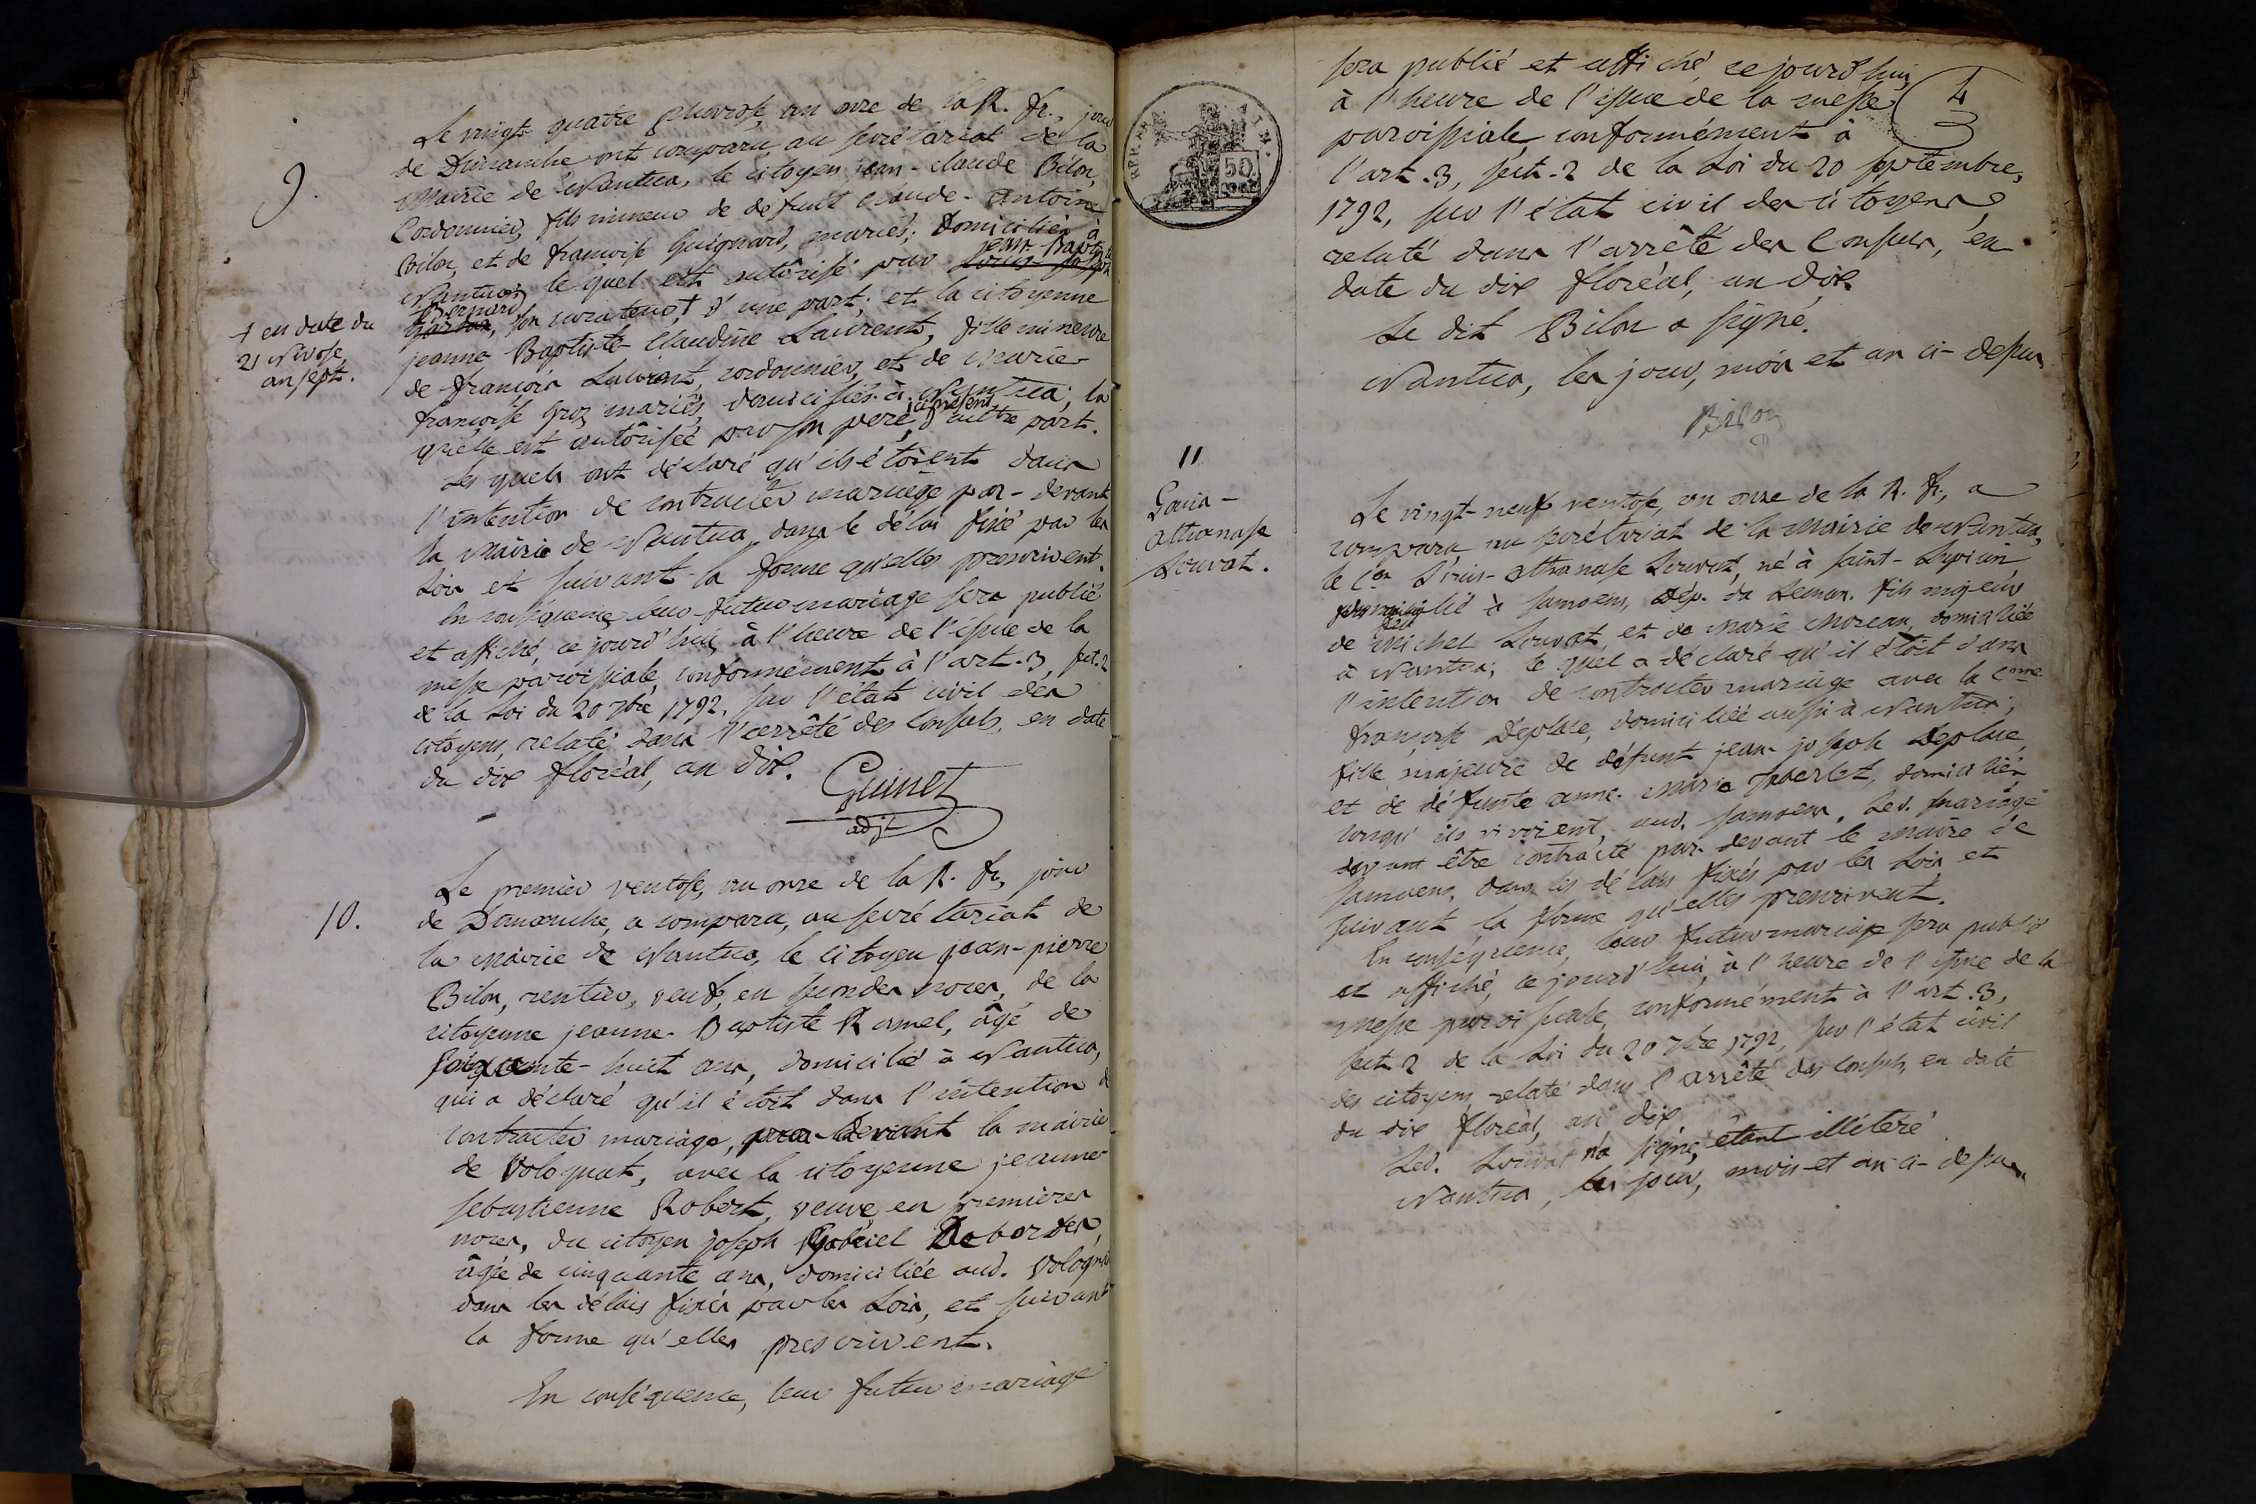 9.
Le vingt quatre pluviose, an onze de la R. fr., jour
de Dimanche ont comparu au secrétariat de la
Mairie de Nantua, le citoyen jean-claude Bilon,
Cordonnier, fils mineur de défunt claude-antoine
Bilon, et de françoise Guignard, mariés, Domiciliés à
jean Baptiste
Nantua, le quel est autôrisé par Louis joseph
Bernard
son curateur, + d'une part; et la citoyenne
+ en date du
21 Nivose,
an sept.
jeanne Baptiste Claudine Laurent, fille mineure
de françois Laurent, cordonnier, et de Marie
françoise Groz mariés, domiciliés à Nantua; la
quelle est autôrisée par son pere, ici présent, d'autre part.
Les quels ont déclaré qu'ils étoient dans
l'intention de contracter mariage par-devant
la Mairie de Nantua, dans le délai fixé par les
Lois et suivant la forme qu'elles prescrivent.
En conséquence leur futur mariage sera publié
et affiché, ce jourd'hui, à l'heure de l'issue de la
messe paroissiale, conformément à l'art. 3, sect. 2
de la Loi du 20 7bre 1792, sur l'état civil des
citoyens, relaté dans l'arrêté des Consuls, en date
du dix floréal, an dix.
Guinet
adjt
10.
Le premier ventose, an onze de la R. fr., jour
de Dimanche, a comparu, au secrétariat de
la Mairie de Nantua, le citoyen jean-pierre
Bilon, rentier, veuf, en secondes noces, de la
citoyenne jeanne-Baptiste Ramel, âgé de
soixante-huit ans, domicilié à Nantua,
qui a déclaré qu'il étoit dans l'intention de
contracter mariage, par-devant la mairie
de Volognat, avec la citoyenne jeanne
sebastienne Robert, veuve, en premières
noces, du citoyen joseph Gabriel Debordes,
âgée de cinquante ans, domiciliée aud. Volognat
dans les délais fixés par les Lois, et suivant
la forme qu'elles prescrivent.
En conséquence, leur futur mariage
4
sera publié et affiché, ce jourd'hui,
à l'heure de l'issue de la messe
paroissiale, conformément à
l'art. 3, sect. 2 de la Loi du 20 septembre,
1792, sur l'état civil des citoyens,
relaté dans l'arrêté des Consuls, en
date du dix floréal, an dix.
Le dit Bilon a signé.
Nantua, les jour, mois et an ci-dessus
Bilon
50
11
Louis-
athanase
Louvat.
Le vingt-neuf ventose, an onze de la R. fr., a
comparu, au secrétariat de la Mairie de Nantua,
le Cen Louis-athanase Louvat, né à saint-Cyprien
domicilié à Samoens, Dép. du Leman, fils majeur
de feu Michel Louvat, et de Marie Moreau, domiciliée
à Nantua; le quel a déclaré qu'il étoit dans
l'intention de contracter mariage avec la Cenne
françoise Deplace, domiciliée aussi à Nantua,
fille majeure de défunt jean-joseph Deplace,
et de défunte anne-Marie, domiciliés
lorsqu'ils vivoient, aud. Samoens, Led. mariage
devant être contracté par-devant le maire de
Samoens, dans les délais fixés par les Lois et
suivant la forme qu'elles prescrivent.
En conséquence, leur futur mariage sera publié
et affiché, ce jourd'hui, à l'heure de l'issue de la
messe paroissiale, conformément à l'art. 3,
sect. 2 de la Loi du 20 7bre 1792, sur l'état civil
des citoyens, relaté dans l'arrêté des Consuls, en date
du dix floréal, an dix.
Led. Louvat n'a signé, étant illétéré
Nantua, les jour, mois et an ci-dessus